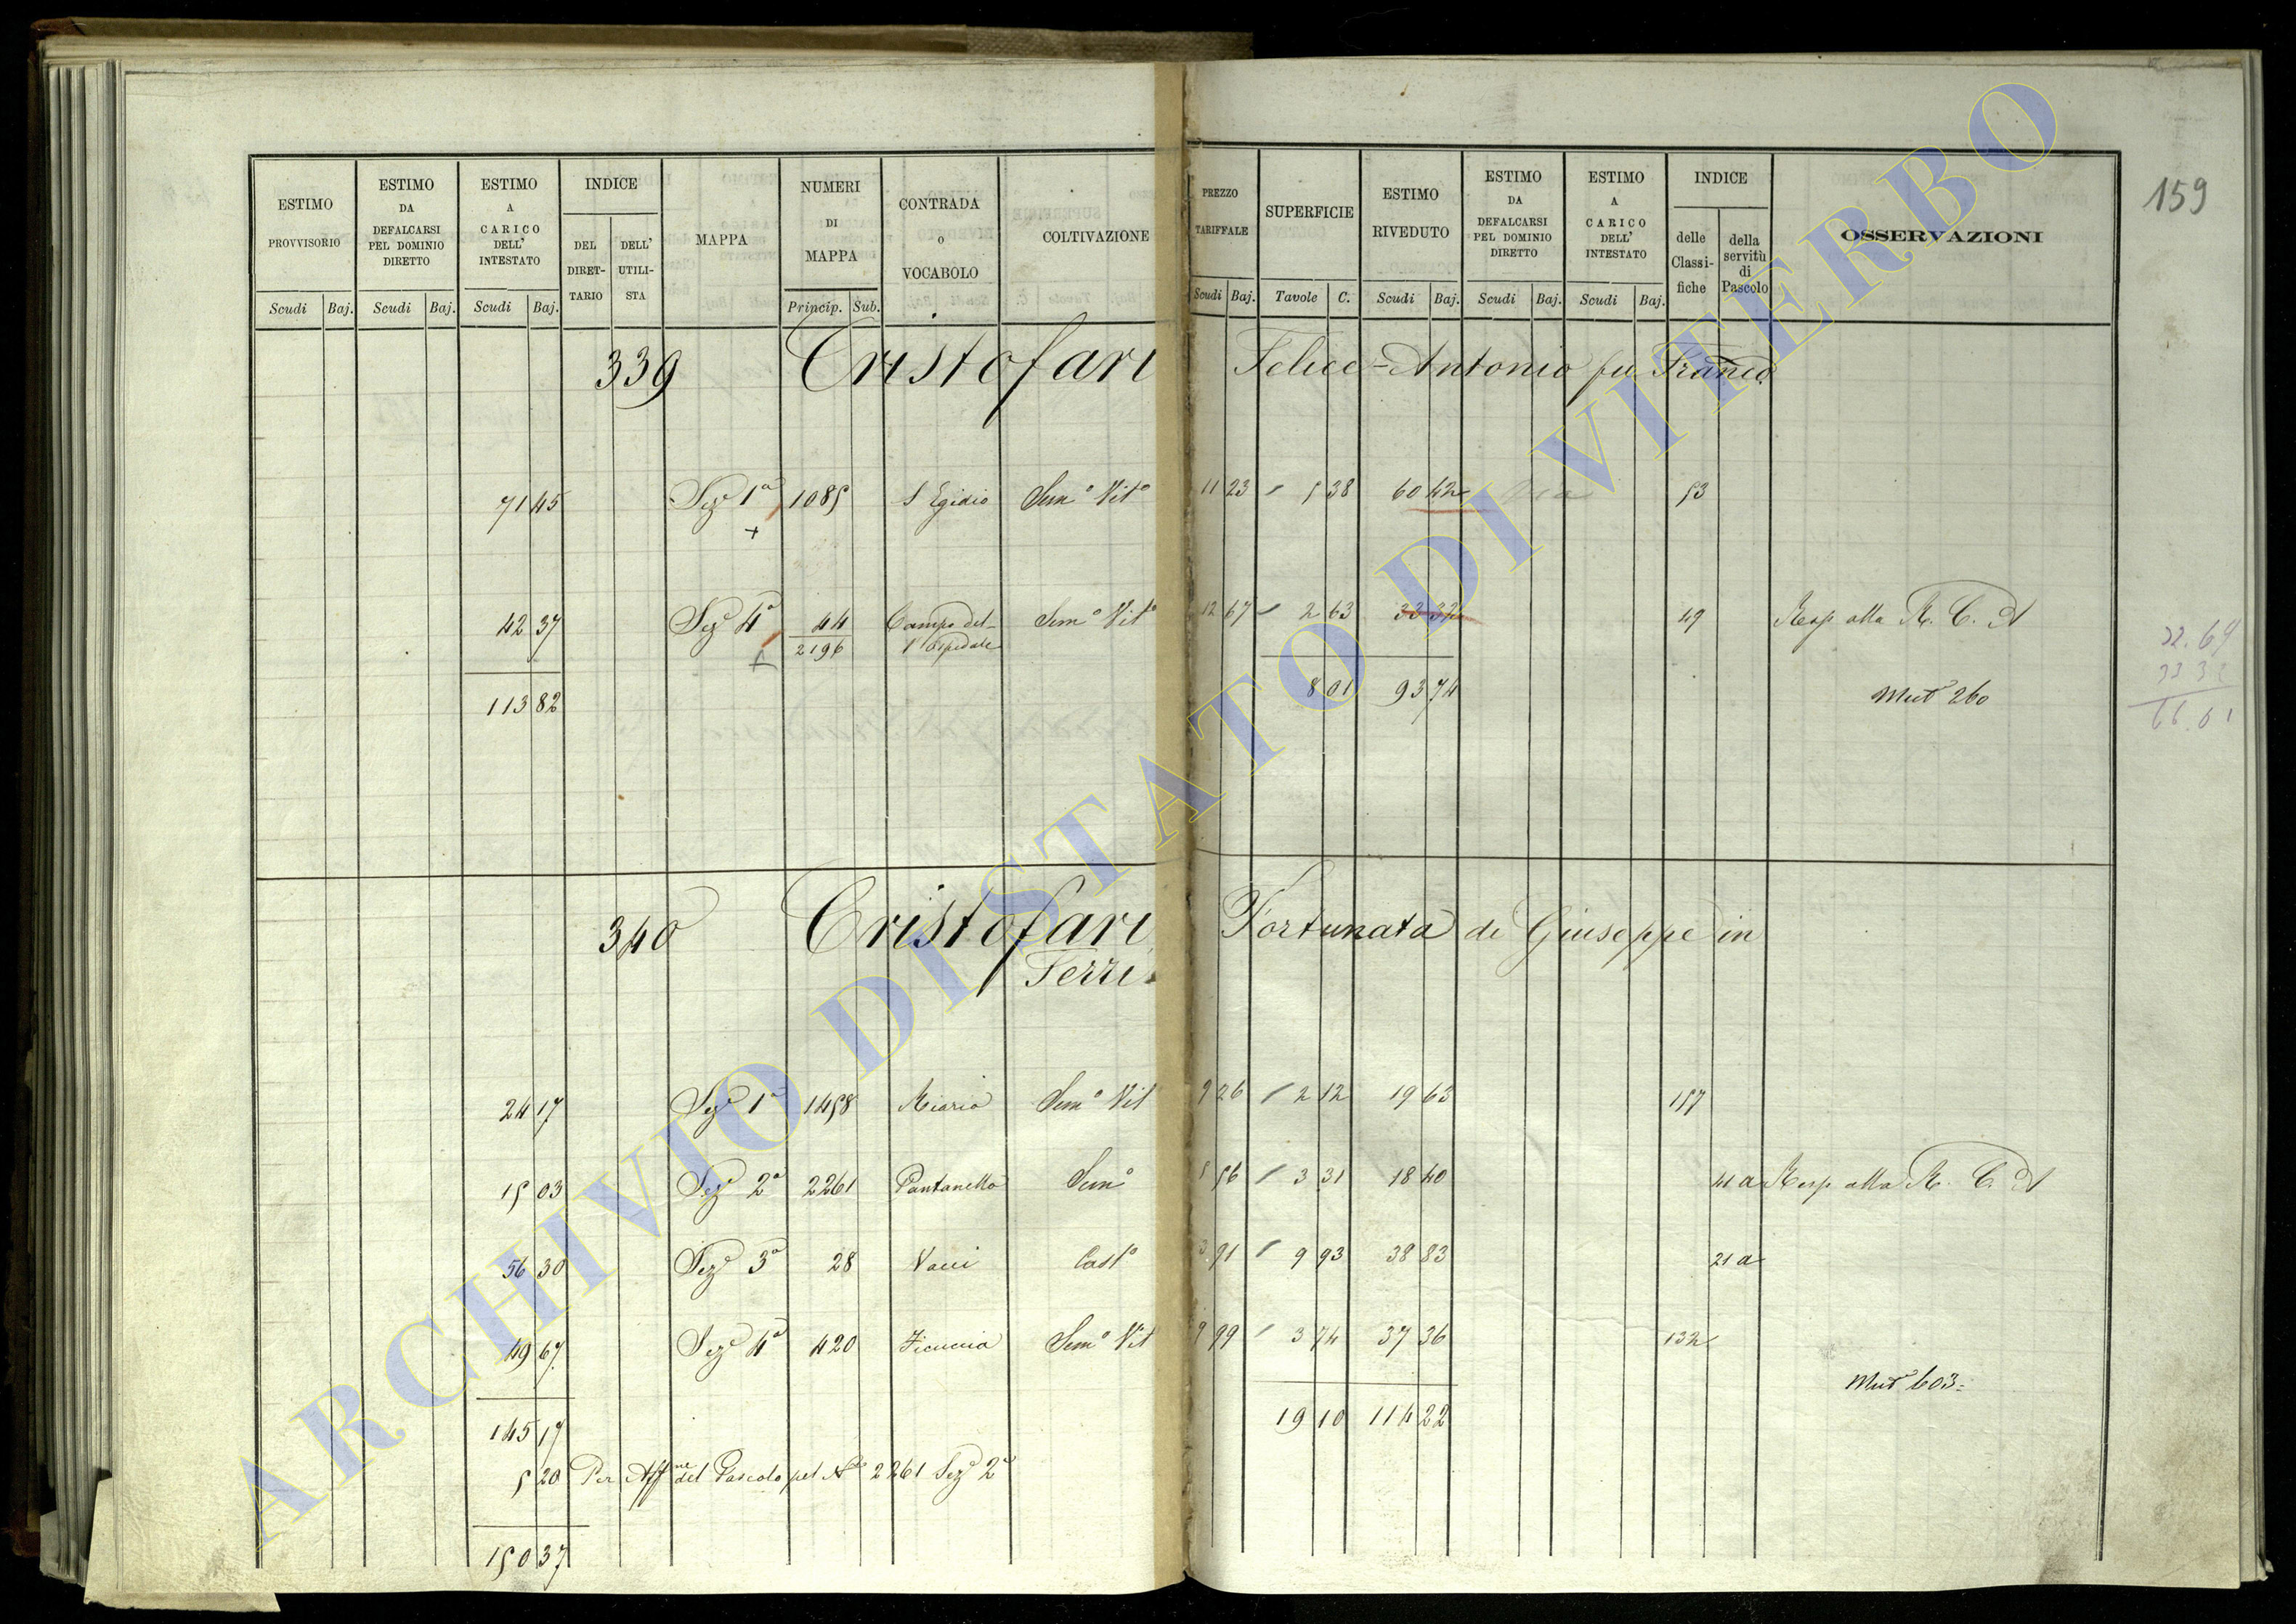 159
ESTIMO PROVVISORIO Scudi Baj.
ESTIMO DA DEFALCARSI PEL DOMINIO DIRETTO Scudi Baj.
ESTIMO A CARICO DELL' INTESTATO Scudi Baj.
INDICE DEL DIRETTARIO DELL' UTILISTA
MAPPA
NUMERI DI MAPPA Princip. Sub.
CONTRADA O VOCABOLO
COLTIVAZIONE
PREZZO TARIFFALE Scudi Baj.
SUPERFICIE Tavole C.
ESTIMO RIVEDUTO Scudi Baj.
ESTIMO DA DEFALCARSI PEL DOMINIO DIRETTO Scudi Baj.
ESTIMO A CARICO DELL' INTESTATO Scudi Baj.
INDICE delle Classifiche della servitù di Pascolo
OSSERVAZIONI
339 Cristofari Felice-Antonio fu Franco
71 45 Sez.e 1a 1085 S Egidio Semo Vito 11 23 5 38 60 42 53
42 37 Sez.e 4a 44 Campo del- Semo Vito 12 67 2 63 33 32 49 Resp alla R. C. A
2196 l'Ospedale
113 82 8 01 93 74 Mut 260
33 32
66.01
340 Cristofari Fortunata di Giuseppe in
Ferri
24 17 Sez.e 1a 1458 Riario Semo Vit 9 26 2 12 19 63 157
15 03 Sez.e 2a 2261 Pantanello Semo 5 56 3 31 18 40 41 a Resp alla R. C. A
56 30 Sez.e 3a 28 Vacci Casto 3 91 9 93 38 83 21 a
49 67 Sez.e 4a 420 Ficuccia Semo Vit 9 99 3 74 37 36 132
Mut 603=
145 17 19 10 114 22
5 20 Per Affne del Pascolo pel No 2261 Sez.e 2a
150 37
ARCHIVIO DI STATO DI VITERBO